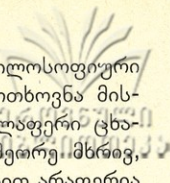 ილოსოფიური
ოთხოვნა მის-
ლაფერი ცხა-
მეორე მხრივ,